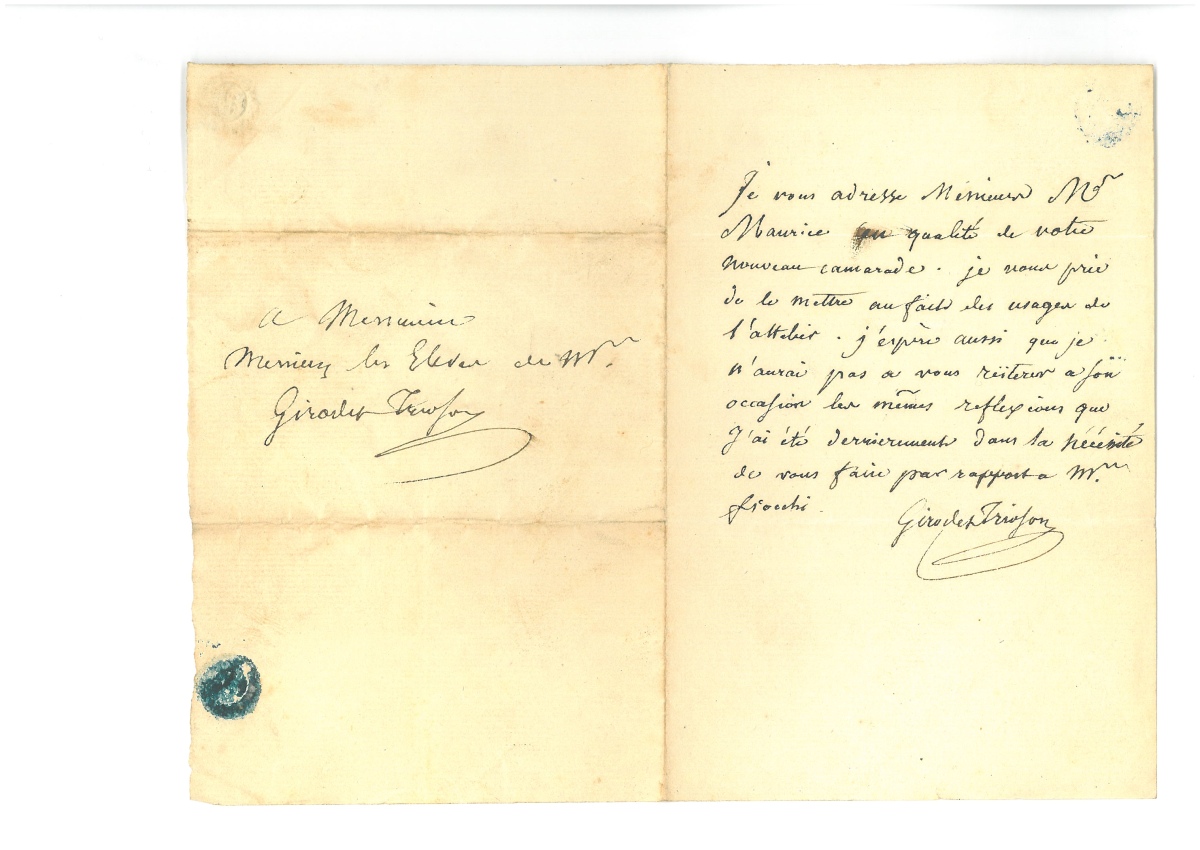 a Messieurs
Messieurs les Eleves de Mr.
Girodet Trioson
Je vous adresse Messieurs Mr
Maurice en qualité de votre
nouveau camarade. je vous prie
de le mettre au fait des usages de
l'attelier. j'espère aussi que je
n'aurai pas a vous réiterer a son
occasion les mêmes reflexions que
J'ai été dernierement dans la nécéssité
de vous faire par rapport a Mr.
fiocchi.
Girodet Trioson